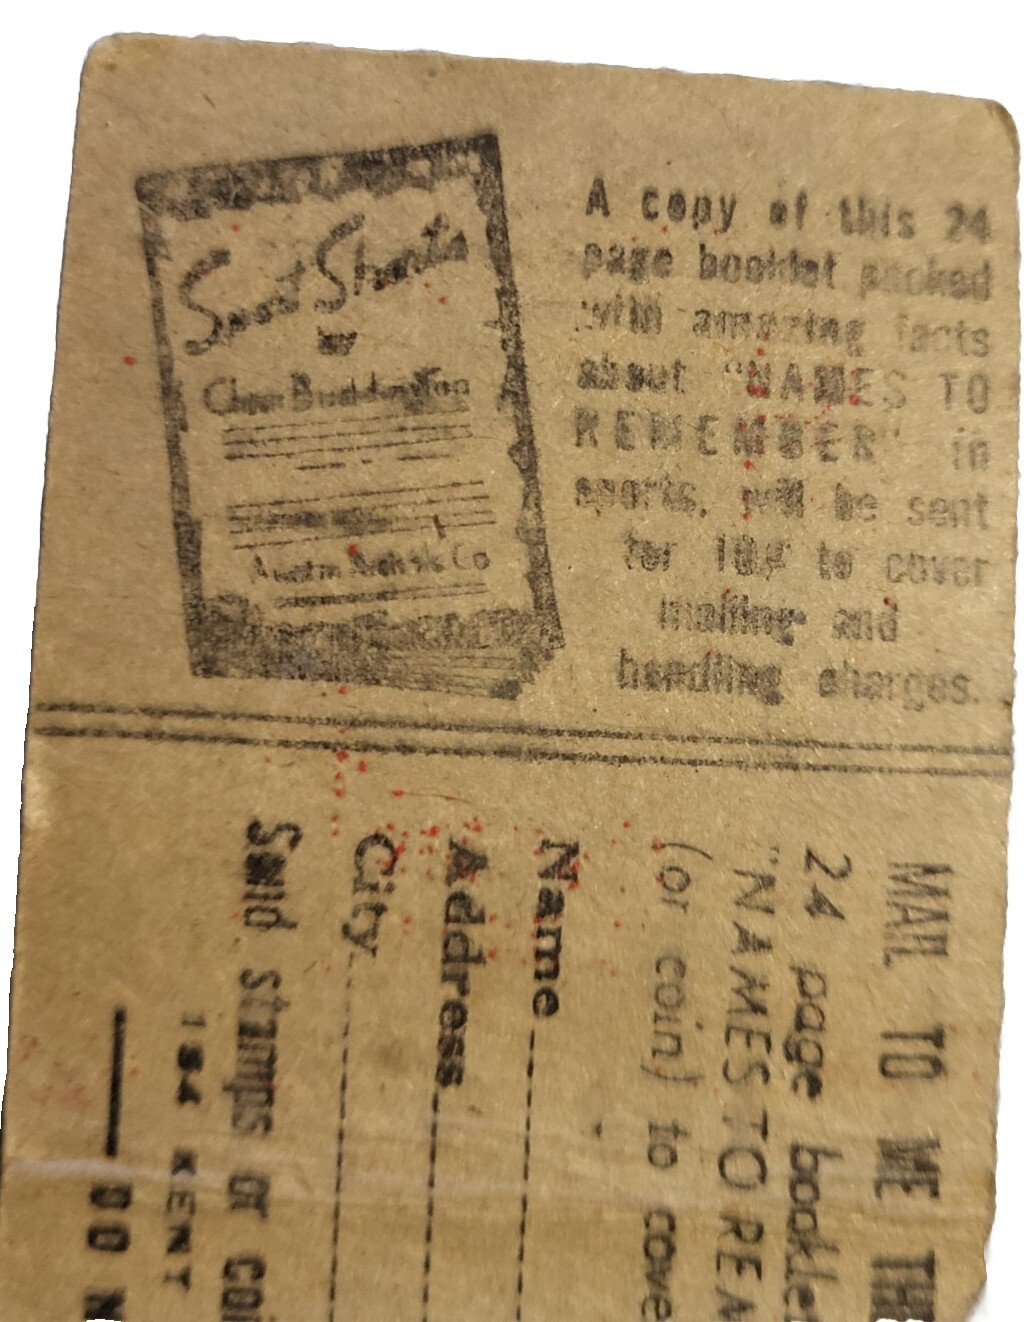 Sport Shorts
BY
A copy of this 24
page booklet packed
with amazing facts
about "NAMES TO
REMEMBER" in
sports, will be sent
for 10¢ to cover
mailing and
handling charges.
MAIL TO ME TH
24 page booklet
"NAMES TO REM
(or coin) to cove
Name
Address
City
Send stamps or coi
184 KENT
DO N